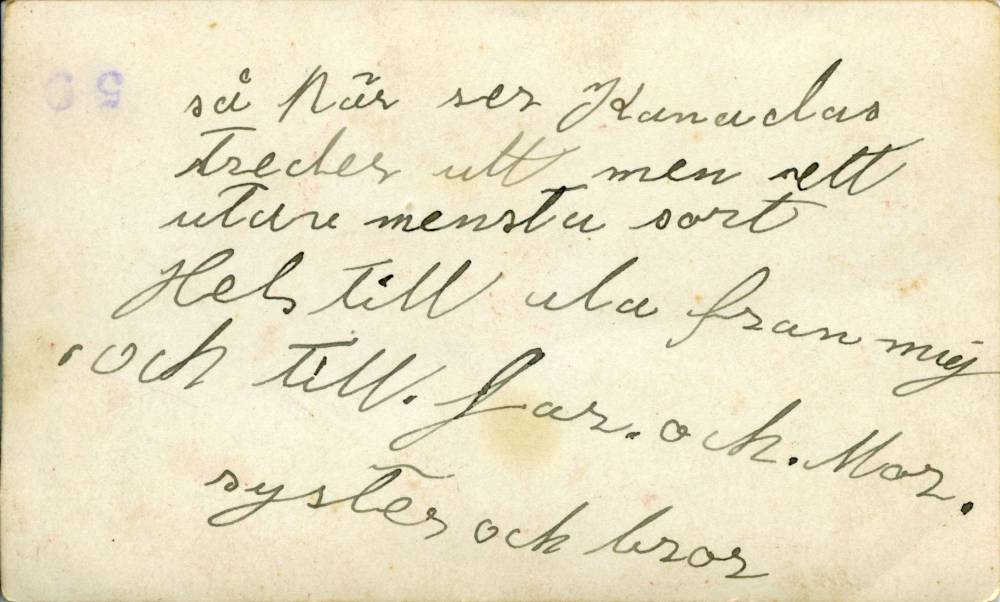 så När ser Kanadas
treder utt men ett
utav mensta sort
Hels till ala fran mig
och till. far. och. Mor.
syster och bror